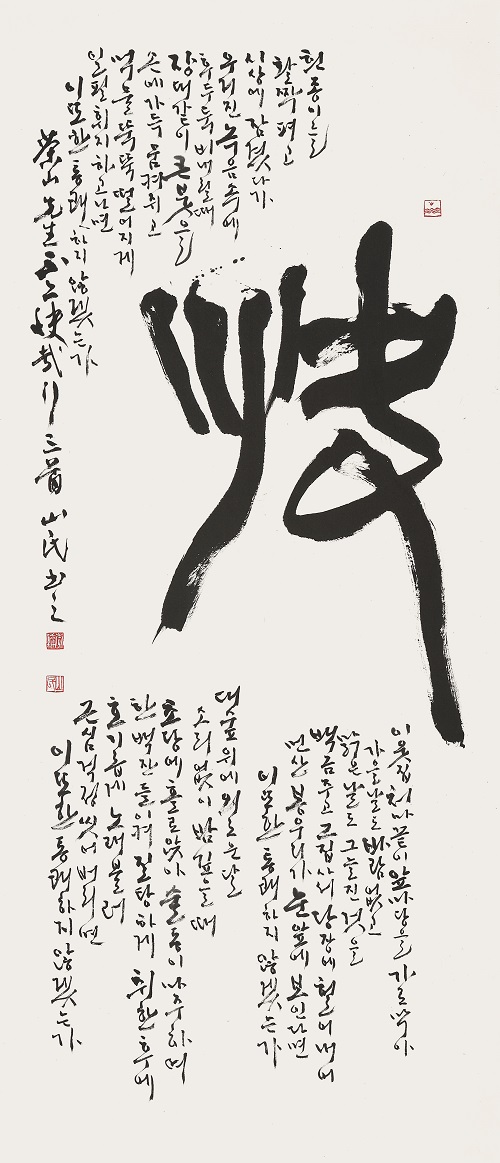 快
흰 종이를
활짝 펴고
시상에 잠겼다가
우거진 녹음 속에
후두둑 비내릴 때
장대같이 큰 붓을
손에 가득 움켜쥐고
먹물 뚝뚝 떨어지게
일필휘지 하고나면
이 또한 통쾌하지 않겠는가
이웃집 처마 끝이 앞마당을 가로막아
가을날도 바람 없고
맑은 날도 그늘진 것을
백금 주고 그 집 사서 당장에 헐어내어
먼산 봉우리가 눈앞에 보인다면
이 또한 통쾌하지 않겠는가
대숲 위에 외로운 달
소리 없이 밤 깊을 때
초당에 홀로 앉아 술동이 마주하며
한 백잔 들이켜 질탕하게 취한 후에
호기롭게 노래 불러
근심 걱정 씻어 버리면
이 또한 통쾌하지 않겠는가
茶山先生 不亦快哉行 三首 山民書之